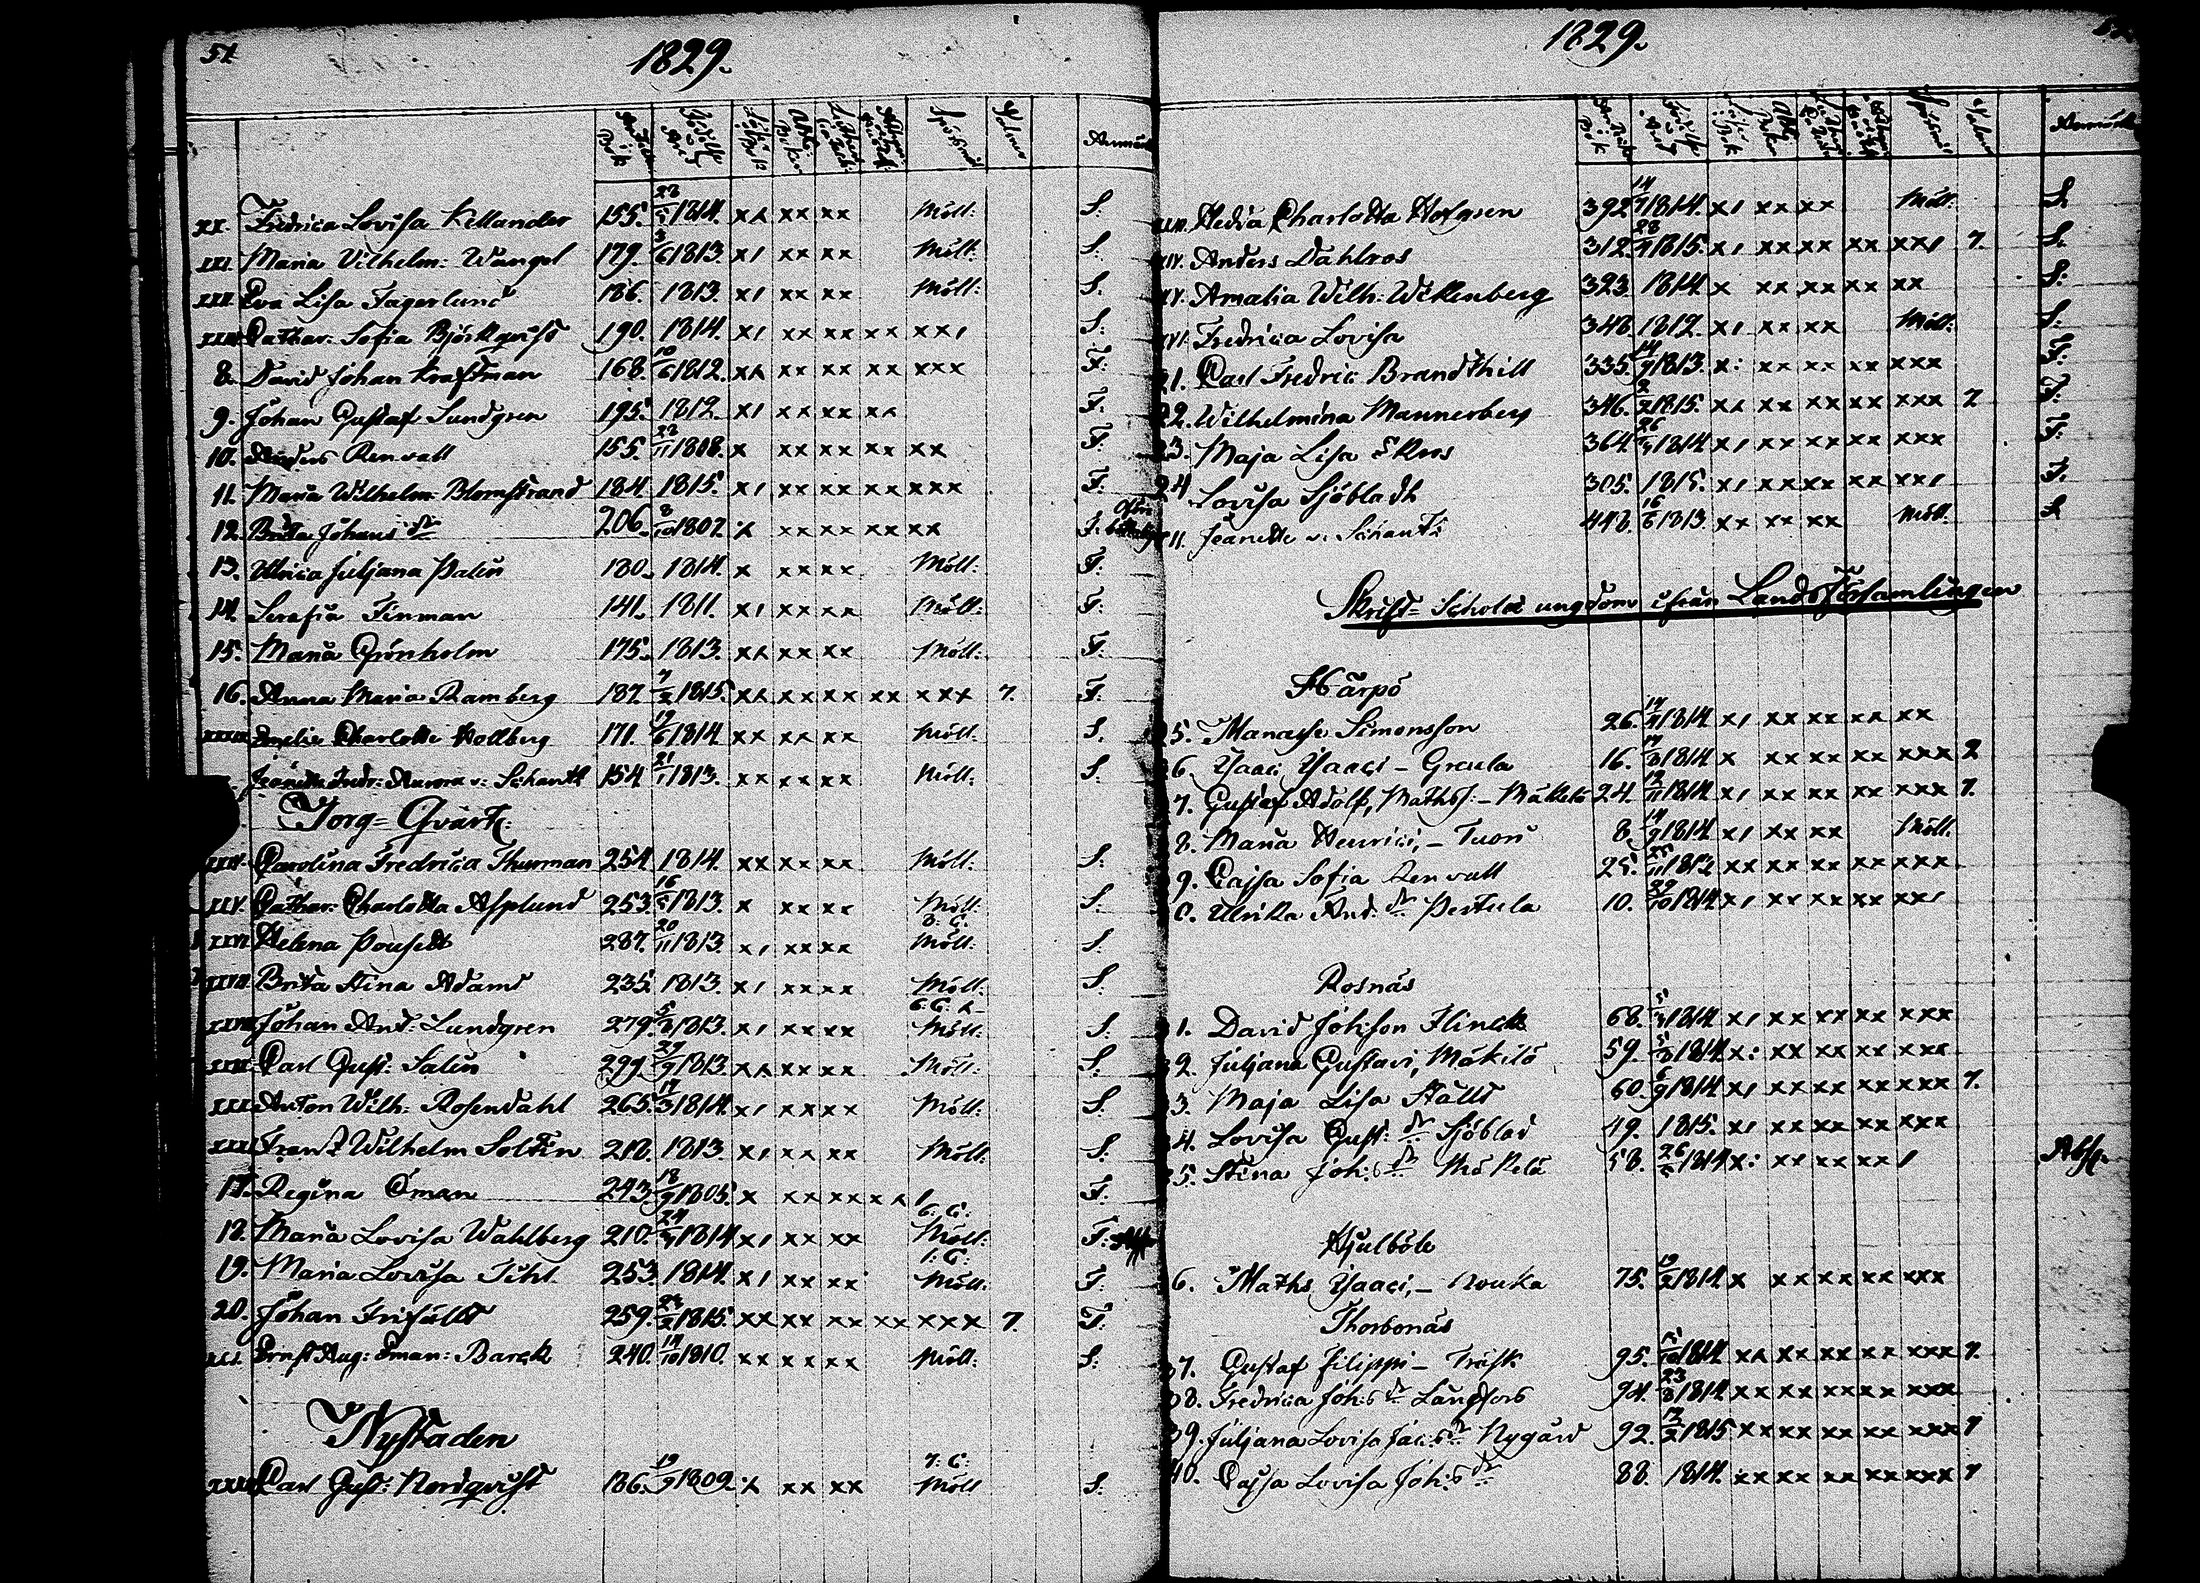 51
1829.
Anmärk
XX. Fredrica Lovisa Killander 155. 22/5 1814. xx xx xx Möll: S:
XXI. Maria Vilhelm: Wangel 179. 3/6 1813. x/ xx xx Möll: S:
XXII. Eva Lisa Fagerlund 186. 1813. x/ xx xx Möll: S.
XXIII. Cathar: Sofia Björkqvist 190. 1814. x/ xx xx xx xx/ S:
8. David Johan Kraftman 168. 10/6 1812. xx xx xx xx xxx F:
9. Johan Gustaf Lundgren 195. 1812. x/ xx xx xx F.
10. Anders Renvall 155. 23/11 1808. x xx xx xx xx F:
11. Maria Wilhelm: Blomstrand 184. 1815. x/ xx xx xx xxx F:
12. Brita Johans dr 206. 8/10 1807. x xx xx xx xx F.
13. Ulrica Juljana Palin 180. 1814. x xx xx Möll: F:
14. Serafia Finman 141. 1811. x/ xx xx Möll: F:
15. Maria Grönholm 175. 1813. xx xx xx Möll: F:
16. Anna Maria Ramberg 187. 7/2 1815. xx xx xx xx xxx 7. F.
Amelie Charlotte Hollberg 171. 19/6 1814 xx xx xx Möll. S.
Aurora v: Schantz 154 21/1 1813. xx xx xx Möll. S:
Torg= Qvart:
XXIV. Carolina Fredrica Thurman 254. 1814. xx xx xx Möll: S:
XXV. Cathar: Charlotta Asplund 253. 16/5 1813. x xx xx Möll. S.
8: C:
XXVI. Helena Pousedt 287. 20/11 1813. x/ xx xx Möll: S:
XXVII. Brita Stina Adams 235. 1813. x/ xx xx Möll. S
XXVIII. Johan And: Lundgren 279. 5/3 1813. x/ xx xx Möll: S:
XXIX. Carl Gust: Salin 299. 29/9 1813. xx xx xx Möll: S:
XXX. Anton Wilh: Rosendahl 265. 17/3 1814. x/ xx xx Möll: S.
XXXI. Frans Wilhelm Soltin 218. 1813. x/ xx xx Möll: S.
17. Regina Öman 243. 18/9 1805. x xx xx xx / F:
6: C:
18. Maria Lovisa Wahlberg 210. 24/4 1814 x/ xx xx Möll: F:
1: C:
19. Maria Lovisa Tihl 253. 1814. x/ xx xx Möll: F:
20. Johan Frifält 259. 22/2 1815. xx xx xx xx xxx 7. F:
Ernst Aug: Eman: Barck 240. 14/10 1810. xx xx xx Möll: S:
Nystaden
7: C:
Carl Gust: Nordqvist 186. 19/9 1809. x xx xx Möll S:
1829.
Anmärk
Hedda Charlotta Hofgren 392. 14/7 1814. x/ xx xx Möll: S.
Anders Dahlros 312. 28/7 1815. x/ xx xx xx xx/ 7. S.
Amalia Wilh: Wittenberg 323 1814. x xx xx xx xx S:
Fredrica Lovisa 348 1812. x/ xx xx Möll: S:
21. Carl Fredric Brandthill 335. 14/9 1813. x: xx xx xx xxx F:
22. Wilhelmina Mannerberg 346. 2/2 1815. xx xx xx xx xxx 7 F:
23. Maja Lisa Ekros 364. 26/4 1814. x/ xx xx xx xxx F:
24 Lovisa Sjöbladh 305. 1815. x/ xx xx xx xx/ F.
Jeanette v. Schantz 448. 16/6 1813. xx xx xx Möll. S
Skrift= Schole ungdom ifrån Landsförsamlingen
Harpö
5. Manasse Simonsson 26. 14/4 1814. x/ xx xx xx xx
6. Isaac Isaaci - Greula 16. 17/3 1814 x xx xx xx xxx 2
7. Gustaf Adolf, Mathss: - Mäkelä 24. 12/11 1814. x/ xx xx xx xxx 7.
8. Maria Henrici, - Tuori 8. 14/9 1814. x/ xx xx Möll.
9. Cajsa Sofia Renvall 25. 25/11 1812 xx xx xx xx xxx
0. Ulrika And: dr Pertula 10. 29/10 1814. x/ xx xx xx xx/
Rosnäs
1. David Johsson Flinck 68. 5/4 1814. x/ xx xx xx xxx
2. Juljana Gustavi, Mäkilä 59. 5/8 1814. x: xx xx xx xxx
3. Maja Lisa Ställt 60. 6/9 1814. x/ xx xx xx xxx 7.
4. Lovisa Gust: dr Sjöblad 49. 1815. x/ xx xx xx xxx
5. Stina Joh: s dr Mäkelä 58. 26/5 1814 x: xx xx xx / Abs.
Hjulböle
6. Maths Isaaci, - Nouka 75. 19/2 1814. x xx xx xx xxx
Thorbonäs
37. Gustaf Filippi - Träsk 95. 15/10 1814 xx xx xx xx xxx 7.
38. Fredrica Joh: s dr Långfors 94. 23/8 1814. xx xx xx xx xxx
39. Juljana Lovisa Jac: s dr Nygård 92. 12/2 1815 xx xx xx xx xxx 7
40. Cajsa Lovisa Joh: s dr 88. 1814. xx xx xx xx xxx 7